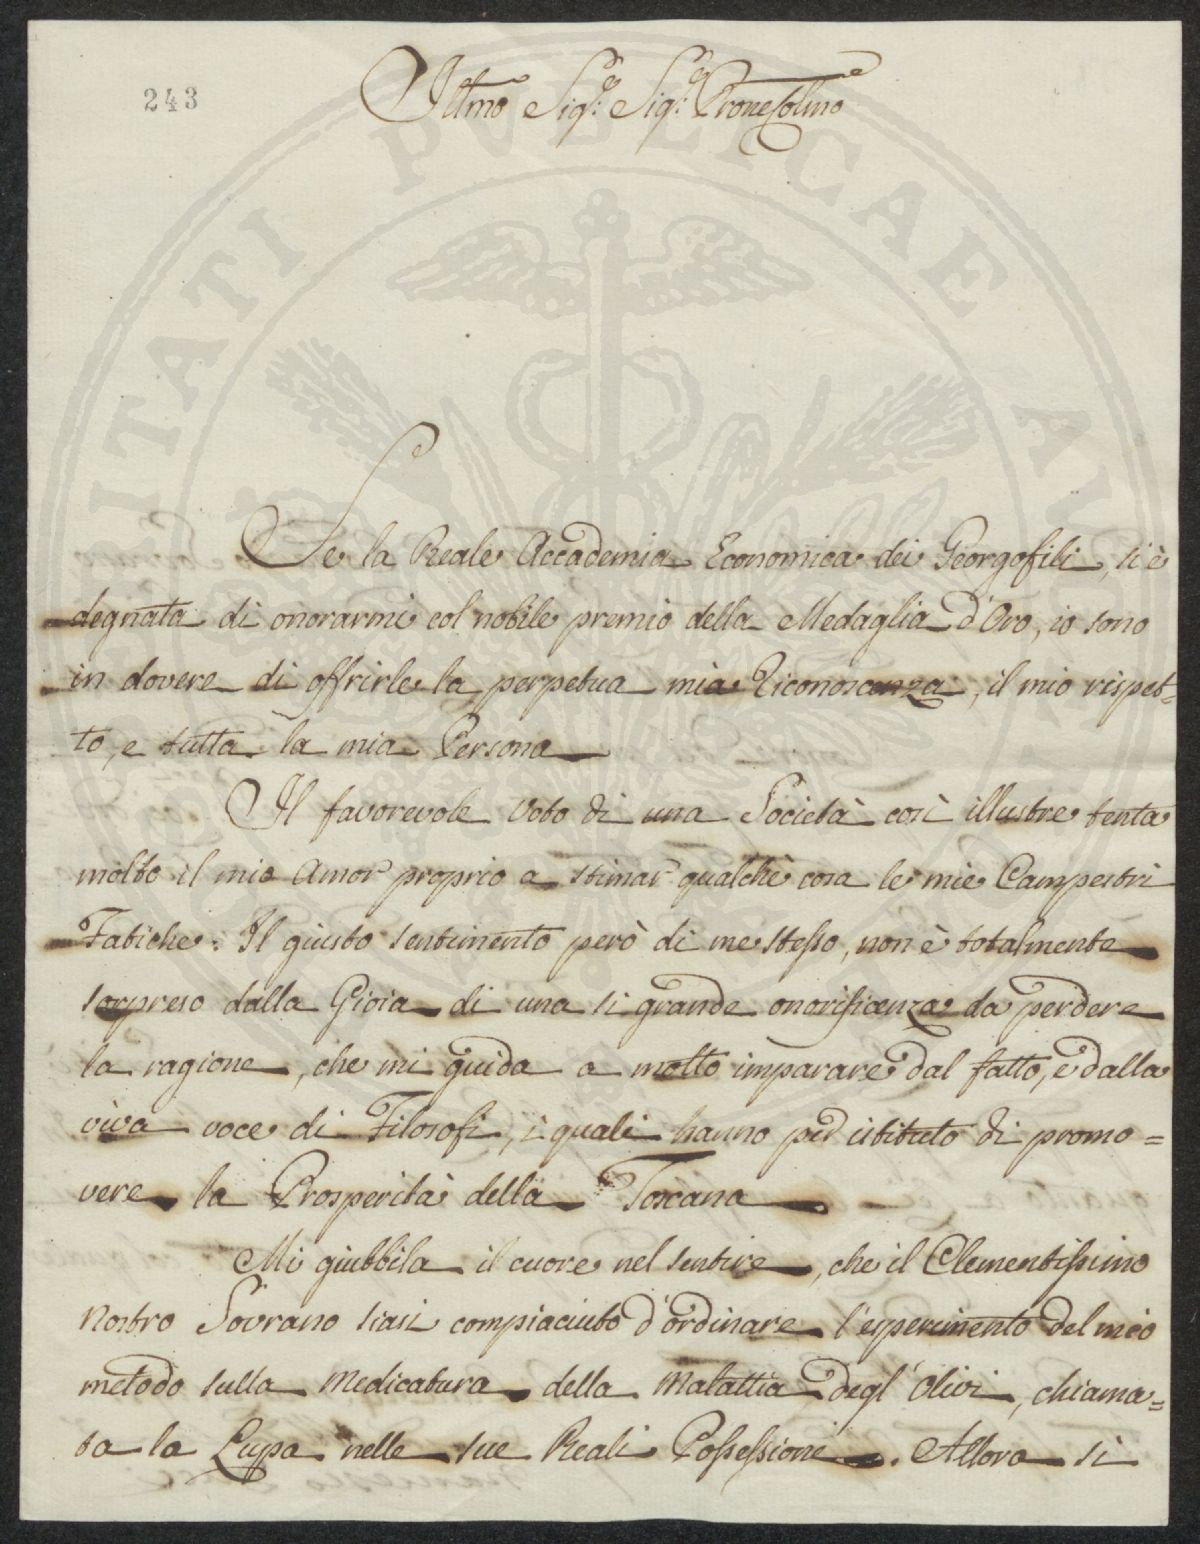 243
Illmo Sig.e Sig.e Prone Colmo
Se la Reale Accademia Economica dei Georgofili, si è
degnata di onorarmi col nobile premio della Medaglia d'Oro, io sono
in dovere di offrirle la perpetua mia Riconoscenza, il mio rispet-
to, e tutta la mia Persona
Il favorevole Voto di una Società così illustre tenta
molto il mio Amor proprio a stimar qualchè cosa le mie Campestri
Fatiche. Il giusto sentimento però di me stesso, non è totalmente
sorpreso dalla Gioia di una si grande onorificenza da perdere
la ragione, che mi guida a molto imparare dal fatto, e dalla
viva voce di Filosofi, i quali hanno per istituto di promo=
vere la Prosperità della Toscana
Mi giubbila il cuore nel sentire, che il Clementissimo
Nostro Sovrano siasi compiaciuto d'ordinare l'esperimento del mio
metodo sulla Medicatura della Malattia degl'Olivi, chiama=
ta la Lupa nelle sue Reali Possessioni. Allora si
PVBLICAE